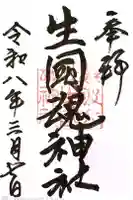 奉拝
生國魂神社
令和八年三月七日